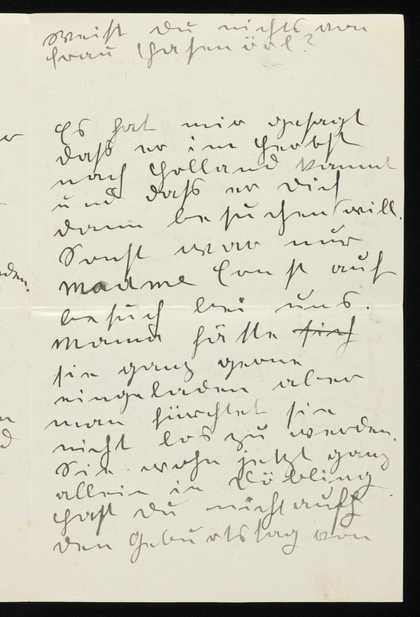 Weist du nichts von
Frau Hasenörl?
Es hat mir gesagt
daß er im Herbst
nach Holland kommt
und daß er dich
dann besuchen will.
Sonst war nur
Madame Const auf
besuch bei uns.
Mama hätte sich
sie ganz gerne
eingeladen aber
man fürchtet sie
nicht los zu werden.
Sie wohn jetzt ganz
allein in Döbling
Hast du nicht auch
den Geburtstag von